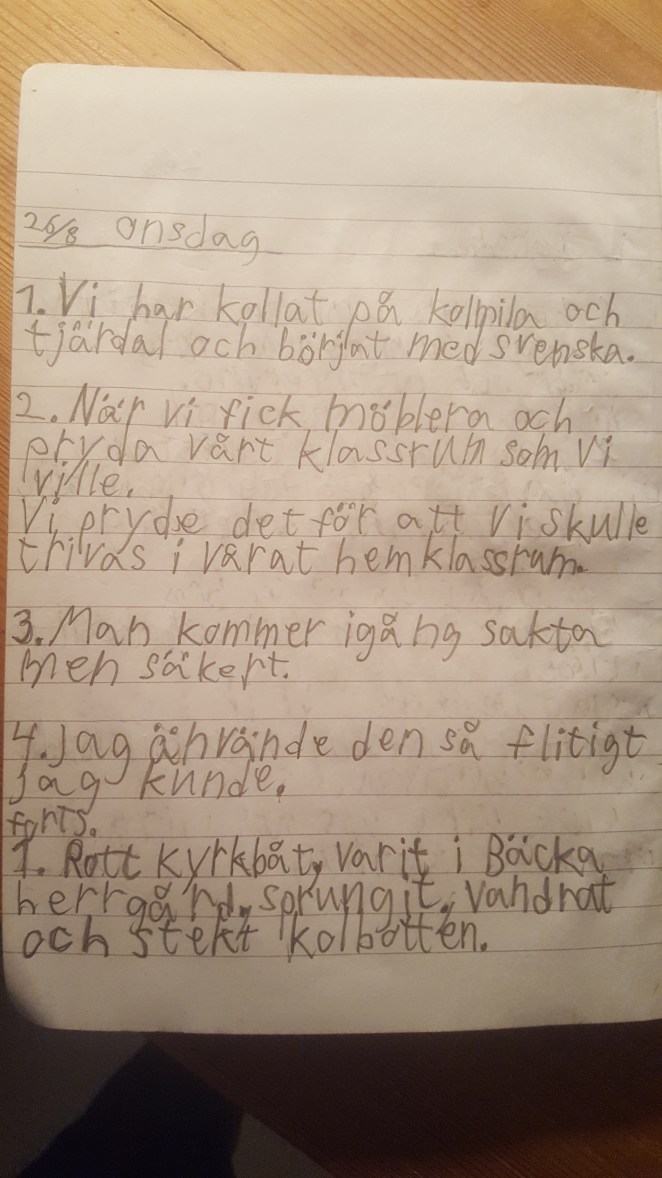 26/8 onsdag
1. Vi har kollat på kolmila och
tjärdal och börjat med svenska.
2. När vi fick möblera och
pryda vårt klassrum som vi
ville.
Vi pryde det för att vi skulle
trivas i vårat hemklassrum.
3. Man kommer igång sakta
men säkert.
4. Jag ähvände den så flitigt
jag kunde.
forts.
1. Rott kyrkbåt, varit i Bäcka
herrgård, sprungit, vandrat
och stekt kolbotten.